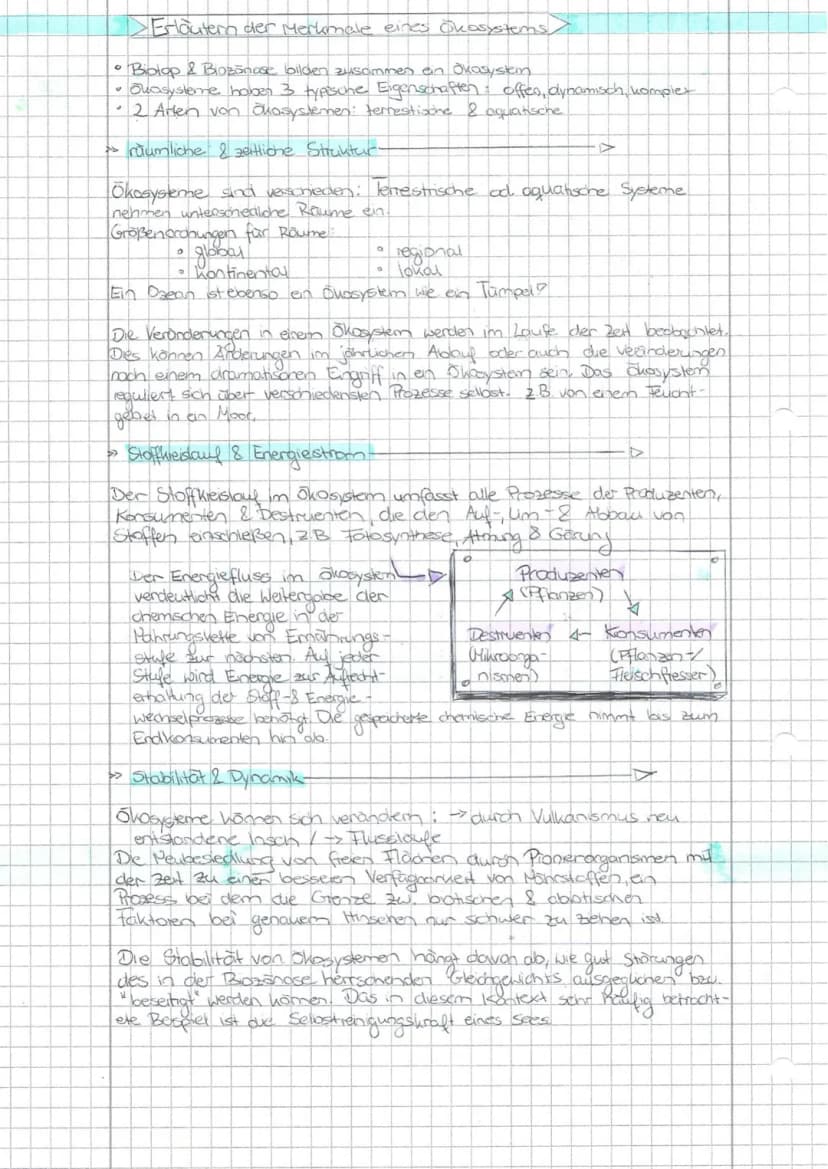 Erläutern der Merkmale eines Ökosystems
• Biotop & Biozönose bilden zusammen ein Ökosystem
• Ökosysteme haben 3 typische Eigenschaften: offen, dynamisch, komplex
• 2 Arten von Ökosystemen: terrestische & aquatische
» räumliche & zeitliche Struktur
Ökosysteme sind verschieden: Terrestrische od. aquatische Systeme
nehmen unterschiedliche Räume ein.
Größenordnungen für Räume:
• global • regional
• kontinental • lokal
Ein Ozean ist ebenso ein Ökosystem wie ein Tümpel
Die Veränderungen in einem Ökosystem werden im Laufe der Zeit beobachtet.
Dies können Änderungen im jährlichen Ablauf oder auch die Veränderungen
nach einem dramatischen Eingriff in ein Ökosystem sein. Das Ökosystem
reguliert sich über verschiedensten Prozesse selbst. z.B. von einem Feucht-
gebiet in ein Moor.
» Stoffkreislauf & Energiestrom
Der Stoffkreislauf im Ökosystem umfasst alle Prozesse der Produzenten,
Konsumenten & Destruenten, die den Auf-, Um- & Abbau von
Stoffen einschießen, z.B Fotosynthese, Atmung & Gärung
Der Energiefluss im Ökosystem
verdeutlicht die Weitergabe der
chemischen Energie in der
Nahrungskette von Ernährungs-
stufe zur nächsten. Auf jeder
Stufe wird Energie zur Aufrecht-
erhaltung der Stoff- & Energie-
wechselprozesse benötigt. Die gespeicherte chemische Energie nimmt bis zum
Endkonsumenten hin ab.
Produzenten
(Pflanzen)
Destruenten ← Konsumenten
(Mikroorga- (Pflanzen-/
nismen) Fleischfresser)
» Stabilität & Dynamik
Ökosysteme können sich verändern: → durch Vulkanismus neu
entstandene Inseln / → Flussläufe
Die Neubesiedlung von freien Flächen durch Pionierorganismen mit
der Zeit zu einen besseren Verfügbarkeit von Nährstoffen, ein
Prozess bei dem die Grenze zw. biotischen & abiotischen
Faktoren bei genauem Hinsehen nur schwer zu ziehen ist.
Die Stabilität von Ökosystemen hängt davon ab, wie gut Störungen
des in der Biozönose herrschenden Gleichgewichts ausgeglichen bzw.
"beseitigt" werden können. Das in diesem Kontext sehr häufig betracht-
ete Beispiel ist die Selbstreinigungskraft eines Sees.